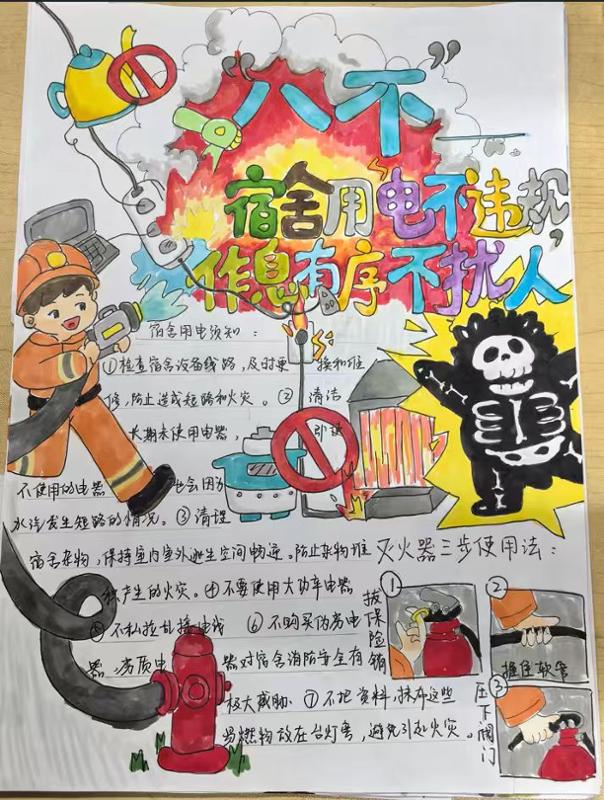 “八不”
宿舍用电不违规,
作息有序不扰人
宿舍用电须知:
①检查宿舍设备线路,及时更换和维
修,防止造成短路和火灾。②清洁
长期未使用电器, 即使
不使用的电器 也会因为
水汽发生短路的情况。③清理
宿舍杂物,保持室内室外逃生空间畅通。防止杂物堆
积产生的火灾。④不要使用大功率电器
不私拉乱接电线 ⑥不购买伪劣电
器 劣质电 器对宿舍消防安全有
极大威胁。⑦不把资料,抹布这些
易燃物放在台灯旁,避免引起火灾。
灭火器三步使用法:
①
拔保险销
②
握住软管
③
压下阀门